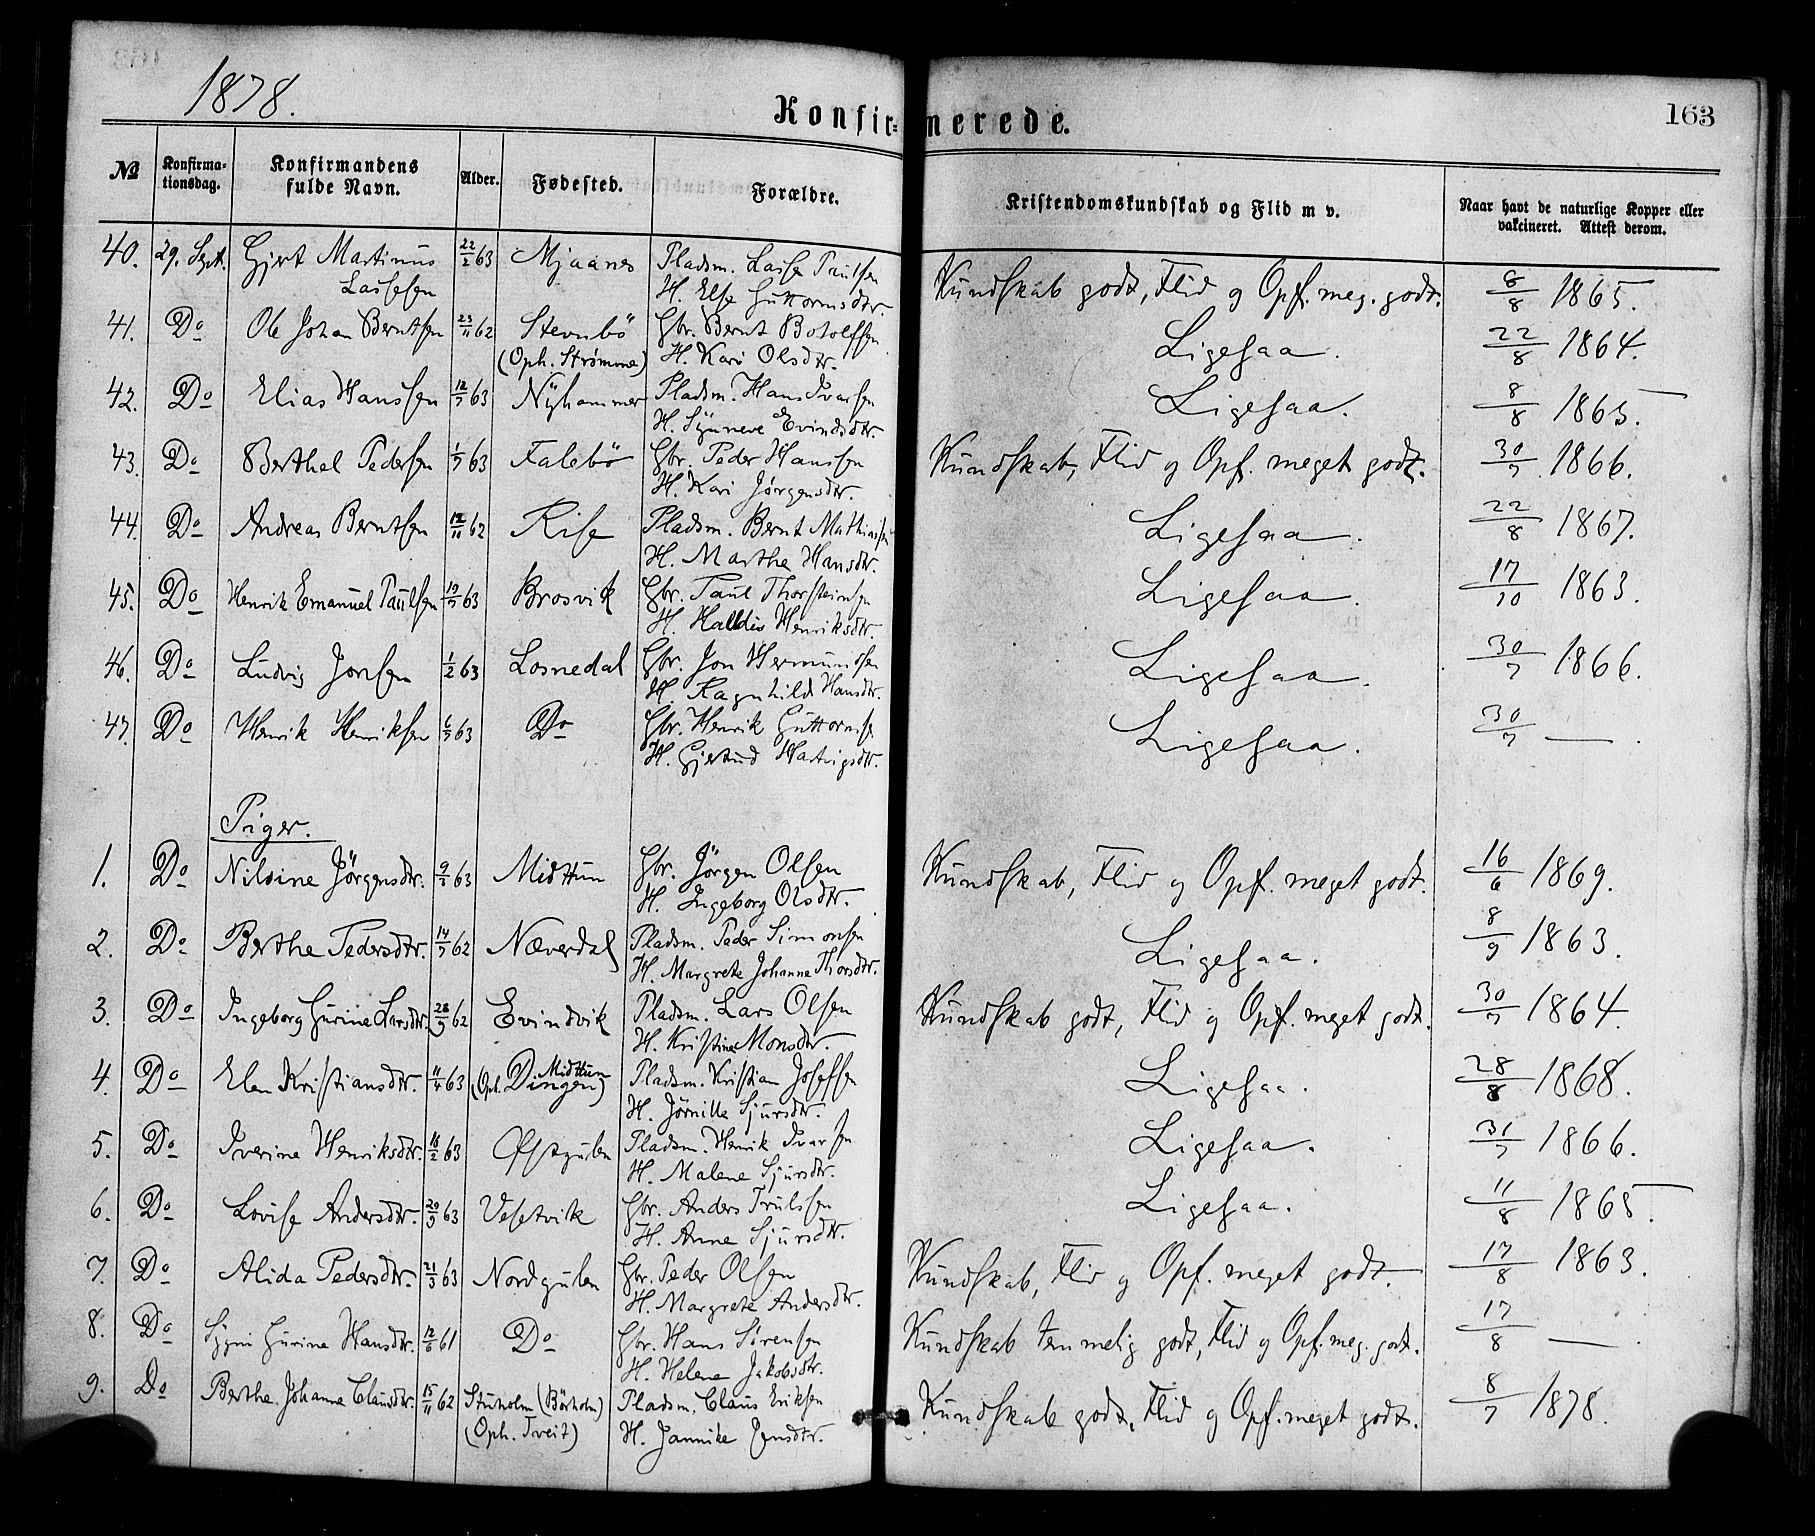 1878.
Konfirmerede.
163
№ Konfirmationsdag. Konfirmandens fulde Navn. Alder. Fødested. Forældre. Kristendomskundskab og Flid m v. Naar havt de naturlige Kopper eller vakcineret. Attest derom.
40. 29. Sept. Gjert Martinus 22/2 63 Mjaanes Pladsm. Lasse Paulsen Kundskab godt, Flid og Opf. meg. godt. 8/8 1865.
Lassesen H. Else Guttormsdtr.
41. Do Ole Johan Berntsen 23/11 62 Stevnbö Gbr. Bernt Botolfsen Ligesaa. 22/8 1864.
(Oph. Strømme) H. Kari Olsdtr.
42. Do Elias Hanssen 12/7 63 Nÿhammer Pladsm. Hans Ivarsen Ligesaa. 8/8 1865.
H. Sÿneve Evindsdtr.
43. Do Berthel Pedersen 1/7 63 Falebö Gbr. Peder Hanssen Kundskab, Flid og Opf. meget godt. 30/7 1866.
H. Kari Jörgensdtr.
44. Do Andreas Berntsen 12/11 62 Rise Pladsm. Bernt Mathiassen Ligesaa. 22/8 1867.
H. Marthe Hansdtr.
45. Do Henrik Emanuel Paulsen 19/7 63 Brosvik Gbr. Paul Thorsteinsen Ligesaa. 17/10 1863.
H. Halldis Henriksdtr.
46. Do Ludvig Jonsen 1/2 63 Losnedal Gbr. Jon Hermundsen Ligesaa. 30/7 1866.
H. Ragnhild Hansdtr.
47. Do Henrik Henriksen 6/7 63 Do Gbr. Henrik Guttormsen Ligesaa. 30/7 — .
H. Gjertrud Hartvigsdtr.
Piger.
1. Do Nilsine Jörgensdtr. 63 Midttun Gbr. Jörgen Olsen Kundskab, Flid og Opf. meget godt. 16/6 1869.
H. Ingeborg Olsdtr.
2. Do Berthe Pedersdtr. 14/7 62 Næverdal Pladsm. Peder Simonsen Ligesaa. 8/9 1863.
H. Margrete Johanne Thorsdtr.
3. Do Ingeborg Gurine Larsdtr. 28/9 62 Evindvik Pladsm. Lars Olsen Kundskab godt, Flid og Opf. meget godt. 30/7 1864.
H. Kristine Monsdtr.
4. Do Elen Kristiansdtr. 11/4 63 Midttun (Oph. Dingen) Pladsm. Kristian Josefsen Ligesaa. 28/8 1868.
H. Jörnille Sjursdtr.
5. Do Iverine Henriksdtr. 18/2 63 Østgulen Pladsm. Henrik Ivarsen Ligesaa. 31/7 1866.
H. Malene Sjursdtr.
6. Do Lovise Andersdtr. 20/9 63 Vesetvik Gbr. Anders Trulssen Ligesaa. 11/8 1865.
H. Anne Sjursdtr.
7. Do Alida Pedersdtr. 21/3 63 Nordgulen Gbr. Peder Olsen Kundskab, Flid og Opf. meget godt. 17/8 1863.
H. Margrete Andersdtr.
8. Do Sygni Gurine Hansdtr. 12/6 61 Do Gbr. Hans Sörensen Kundskab temmelig godt, Flid og Opf. meg. godt. 17/8 — .
H. Helene Jakobsdtr.
9. Do Berthe Johanne Clausdtr. 15/11 62 Stuholm (Börholm) Pladsm. Claus Eriksen Kundskab godt, Flid og Opf. meget godt. 8/7 1878.
(Oph. Tveit) H. Jannike Jensdtr.